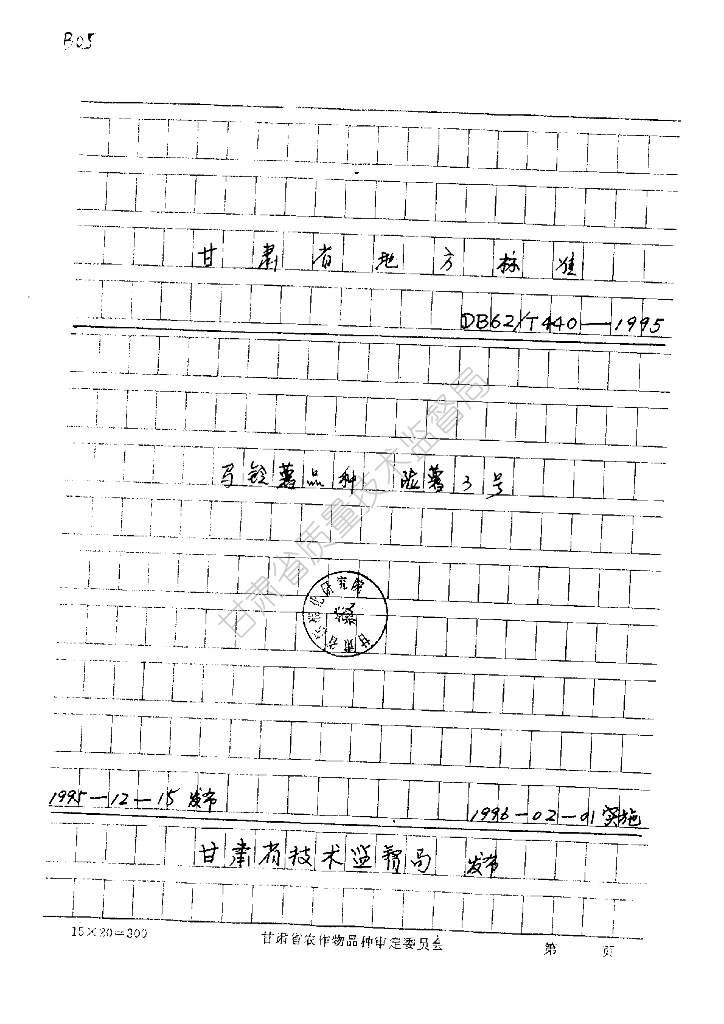 B05
甘肃省地方标准
DB62/T440—1995
马铃薯品种 陇薯3号
甘肃省质量技术监督局
研究院
甘肃省
1995—12—15 发布
1996—02—01 实施
甘肃省技术监督局 发布
15×20=300
甘肃省农作物品种审定委员会
第 页